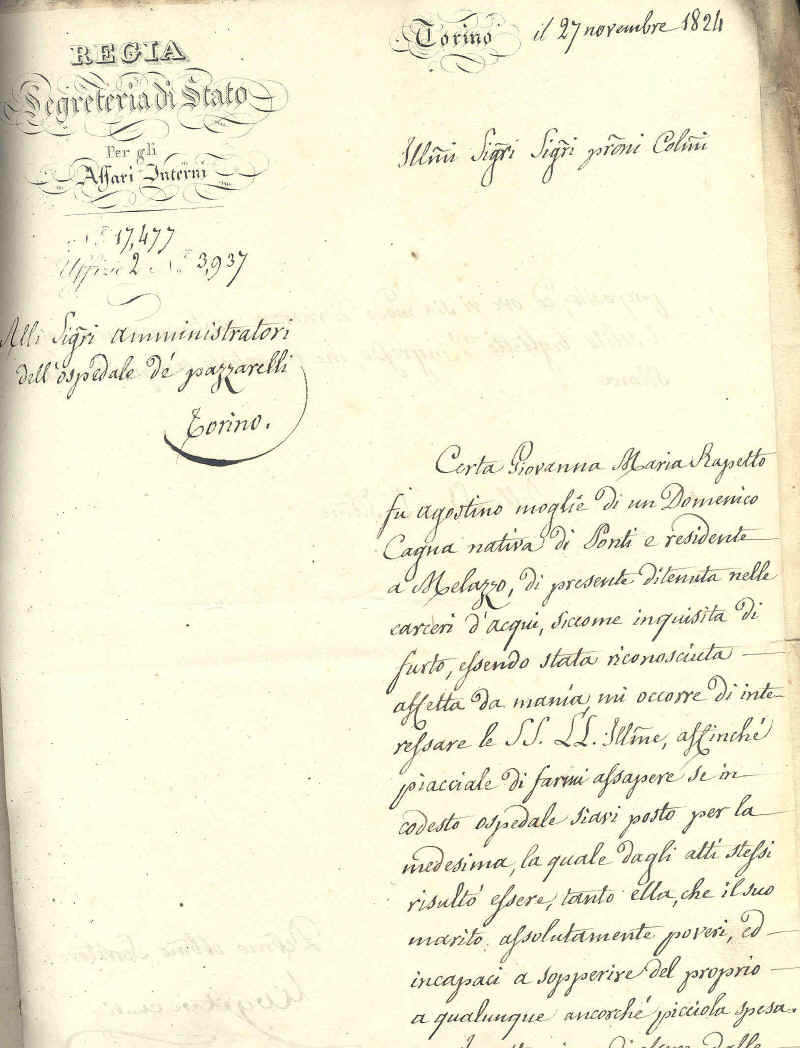 REGIA
Segreteria di Stato
Per gli
Affari Interni
N.° 17,477
Uffizio 2 N.° 3,937
Alli Sigr̃i amministratori
dell'ospedale de' pazzarelli
Torino.
Torino il 27 novembre 1824
Illm̃i Sigr̃i Sigr̃i pr̃oni Colm̃i
Certa Giovanna Maria Rapetto
fu agostino moglie di un Domenico
Cagna nativa di Ponti e residente
a Melazzo, di presente ditenuta nelle
carceri d'acqui, siccome inquisita di
furto, essendo stata riconosciuta
affetta da mania, mi occorre di inte-
ressare le SS. LL. Illm̃e, affinché
piacciale di farmi assapere se in
codesto ospedale siavi posto per la
medesima, la quale dagli atti stessi
risultò essere, tanto ella, che il suo
marito assolutamente poveri, ed
incapaci a sopperire del proprio
a qualunque ancorché picciola spesa.